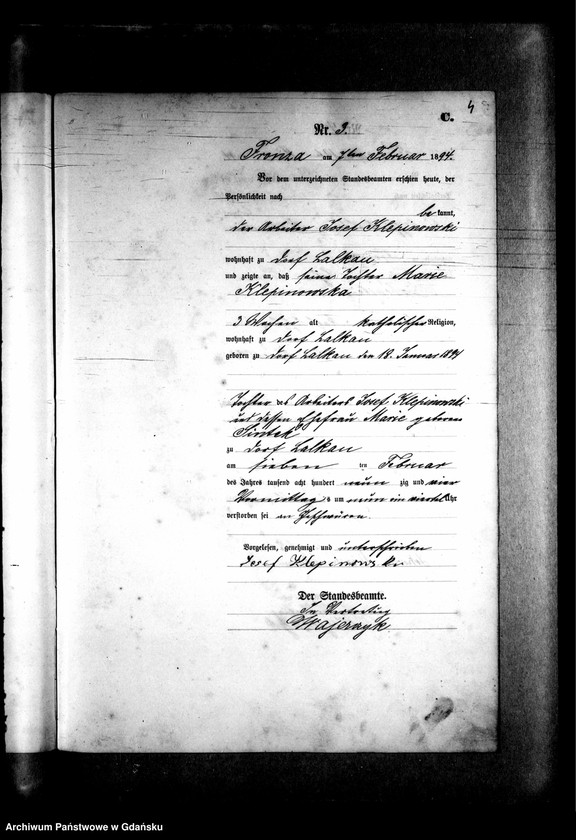 4
C.
Nr. 3.
Fronza am 7ten Februar 1894.
Vor dem unterzeichneten Standesbeamten erschien heute, der
Persönlichkeit nach
be kannt,
der Arbeiter Josef Klepinowski
wohnhaft zu Dorf Lalkau
und zeigte an, daß seine Tochter Marie
Klepinowska
3 Wochen alt katholischer Religion,
wohnhaft zu Dorf Lalkau
geboren zu Dorf Lalkau den 18. Januar 1894
Tochter des Arbeiters Josef Klepinowski
und dessen Ehefrau Marie geborene
zu Dorf Lalkau
am sieben ten Februar
des Jahres tausend acht hundert neun zig und vier
Vormittag s um neun ein viertel Uhr
verstorben sei an Geschwüren.
Vorgelesen, genehmigt und unterschrieben
Josef Klepinowski
Der Standesbeamte.
In Vertretung
Majerzyk
Archiwum Państwowe w Gdańsku